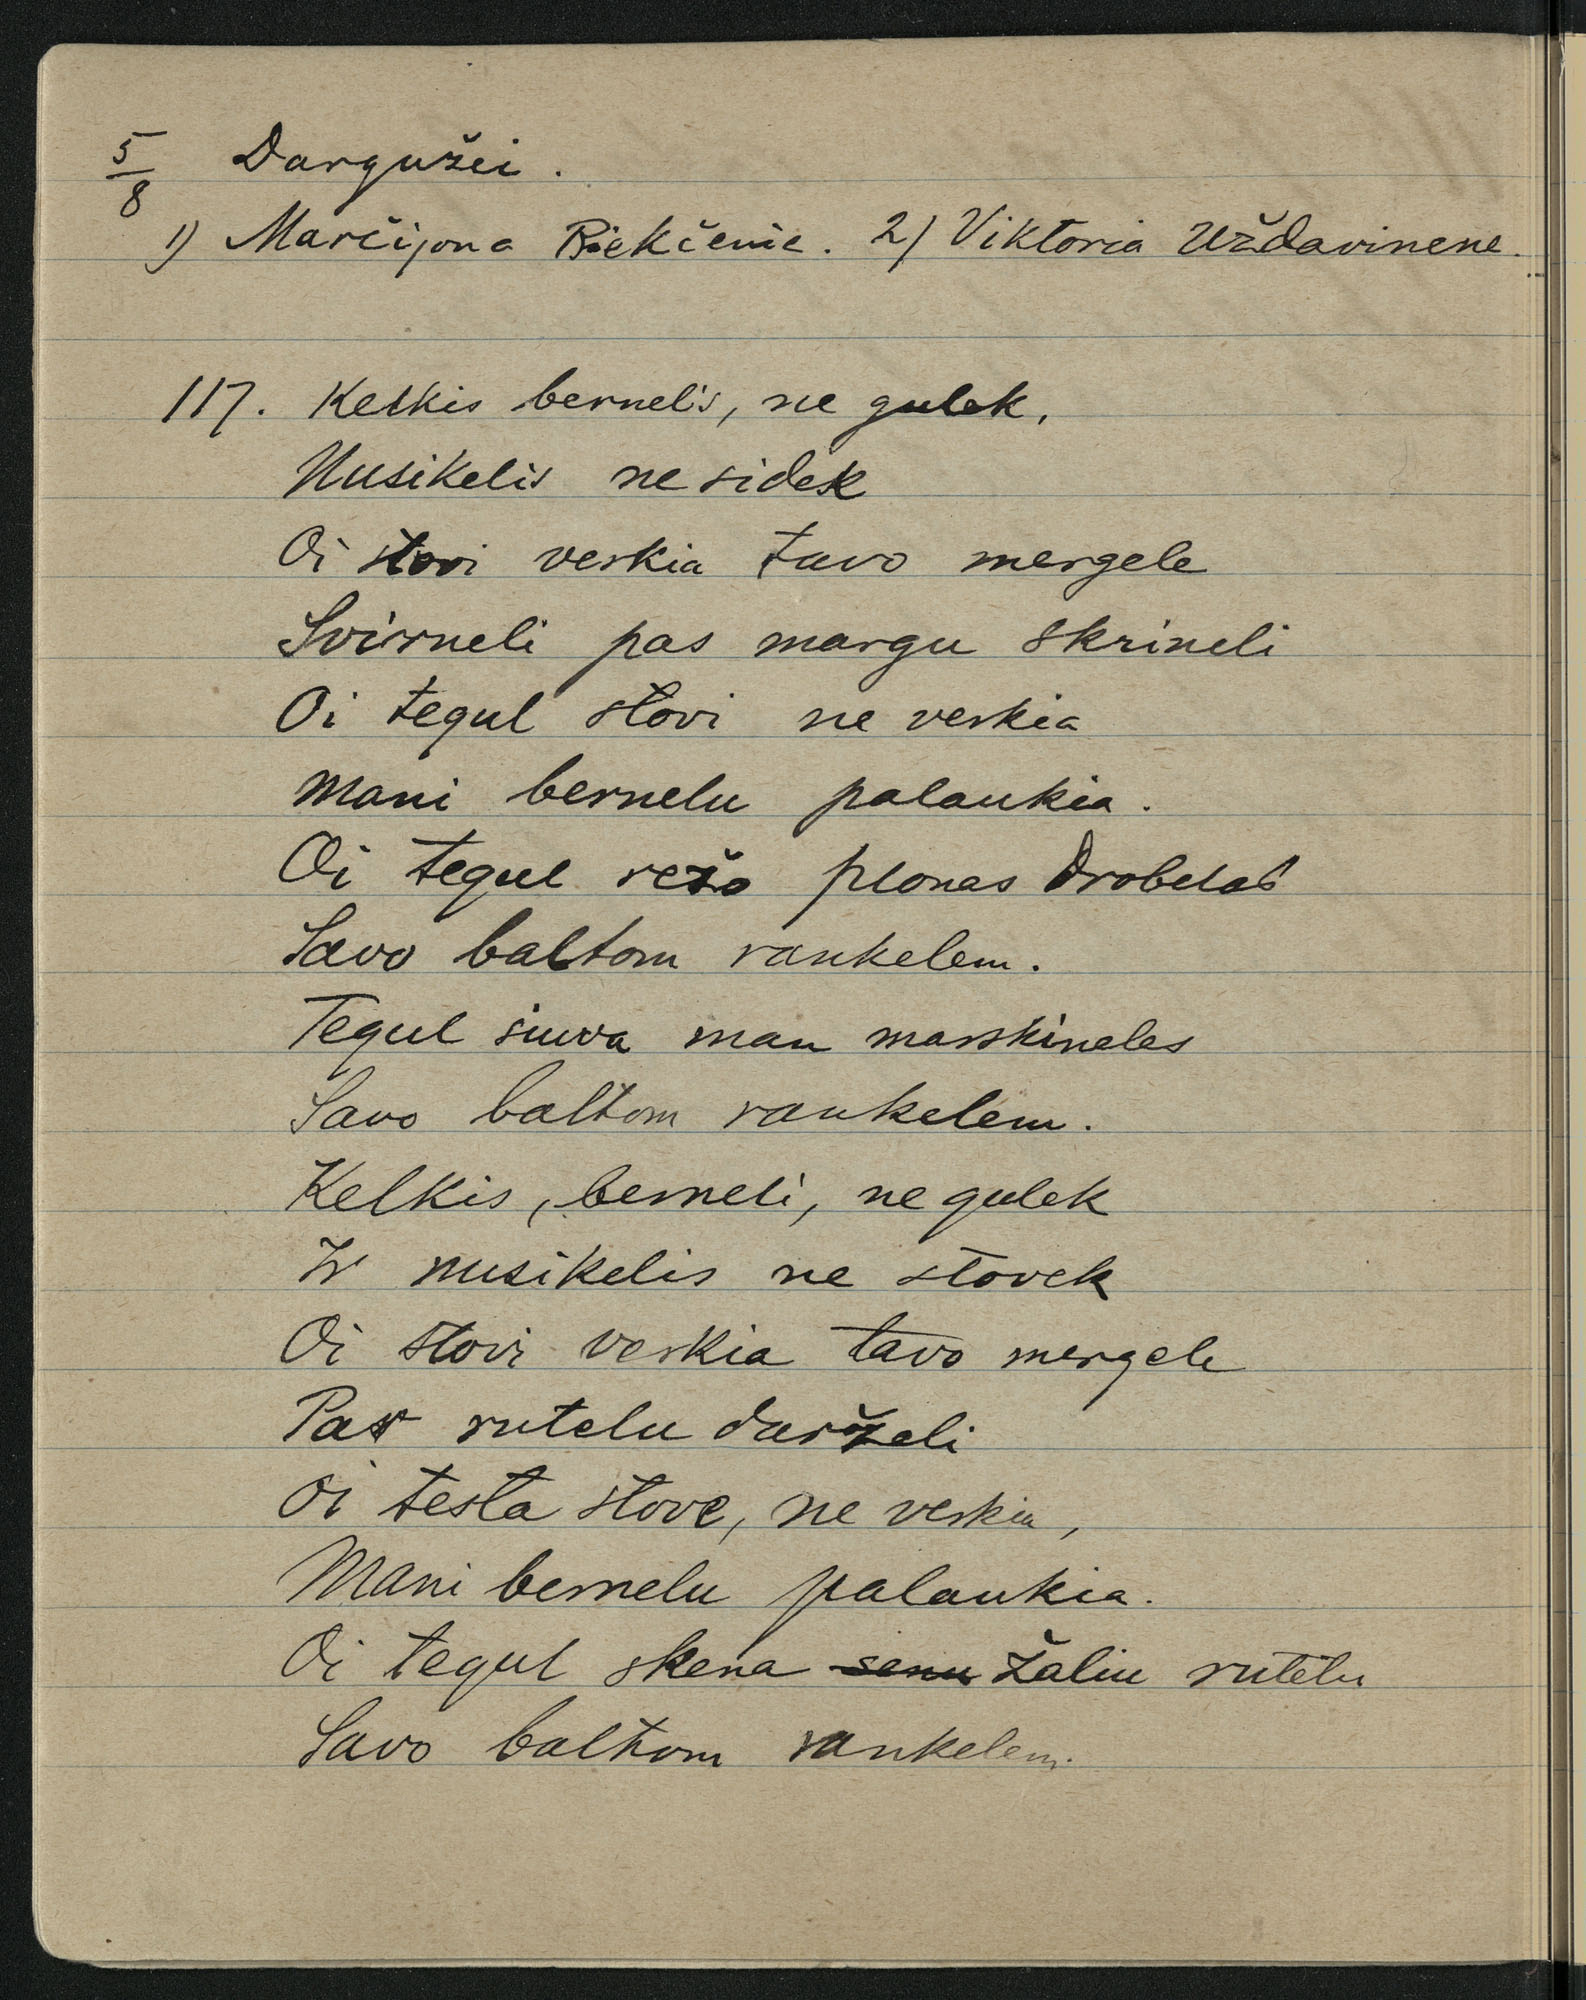 5/8 Dargužei.
1) Marčijona Riekčenie. 2) Viktoria Uždavinene.
117. Kelkis bernelis, ne gulek,
Nusikelis ne sidek
Oi stovi verkia tavo mergele
Svirneli pas margu skrineli
Oi tegul stovi ne verkia
Mani bernelu palaukia.
Oi tegul režo plonas drobelas
Savo baltom rankelem.
Tegul siuva man marskineles
Savo baltom rankelem.
Kelkis, berneli, ne gulek
Ir nusikelis ne stovek
Oi stovi verkia tavo mergele
Pas rutelu darželi
Oi testa stove, ne verkia,
Mani bernelu palaukia.
Oi tegul skena senu žaliu rutelu
Savo baltom rankelem.